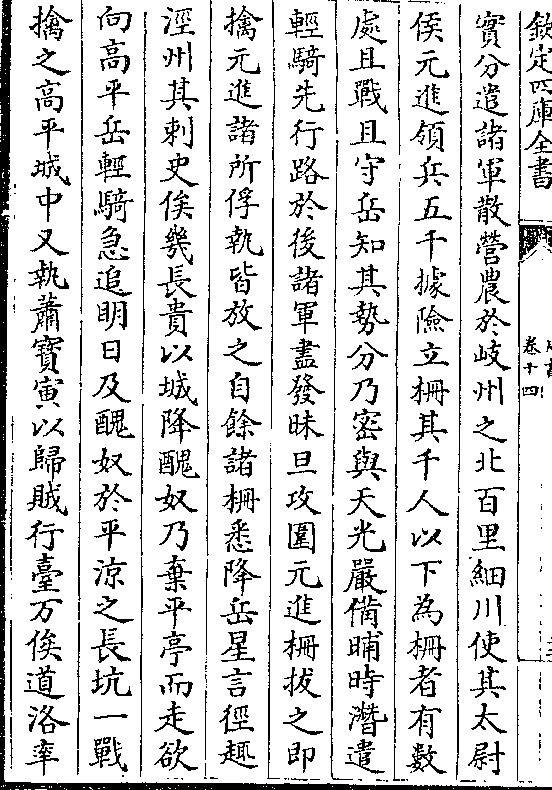 欽定四庫全書
卷十四
實分遣諸軍散營農於岐州之北百里細川使其太尉
侯元進領兵五千據險立柵其千人以下為柵者有數
處且戰且守岳知其勢分乃密與天光嚴備晡時潛遣
輕騎先行路於後諸軍盡發昧旦攻圍元進柵拔之即
擒元進諸所俘執皆放之自餘諸柵悉降岳星言徑趣
涇州其刺史俟幾長貴以城降醜奴乃棄平亭而走欲
向高平岳輕騎急追明日及醜奴於平涼之長坑一戰
擒之高平城中又執蕭寶寅以歸賊行臺万俟道洛率